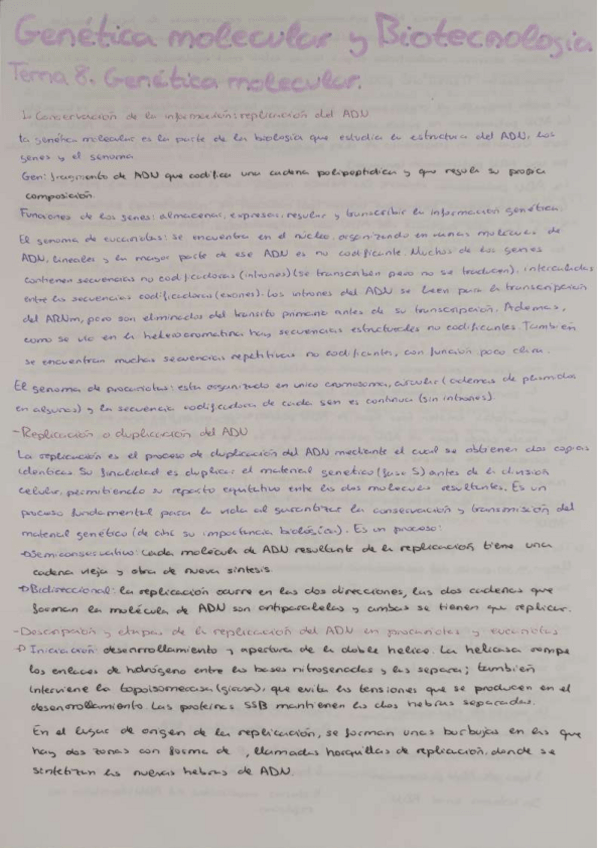 Genética molecular y Biotecnología
Tema 8. Genética molecular.
1. Conservación de la información: replicación del ADN
La genética molecular es la parte de la biología que estudia la estructura del ADN, los
genes y el genoma
Gen: fragmento de ADN que codifica una cadena polipeptídica y que regula su propia
composición.
Funciones de los genes: almacenar, expresar, regular y transcribir la información genética.
El genoma de eucariotas: se encuentra en el núcleo, organizando en varias moléculas de
ADN, lineales y la mayor parte de ese ADN es no codificante. Muchos de los genes
contienen secuencias no codificadoras (intrones) (se transcriben pero no se traducen), intercaladas
entre las secuencias codificadora (exones). Los intrones del ADN se leen para la transcripción
del ARNm, pero son eliminados del tránsito primario antes de su transcripción. Además,
como se vio en la heterocromatina hay secuencias estructurales no codificantes. También
se encuentran muchas secuencias repetitivas no codificantes, con función poco clara.
El genoma de procariotas: esta organizado en unico cromosoma, circular (ademas de plásmidos
en algunos) y la secuencia codificadora de cada gen es continua (sin intrones).
- Replicación o duplicación del ADN
La replicación es el proceso de duplicación del ADN mediante el cual se obtienen dos copias
idénticas. Su finalidad es duplicar el material genético (fase S) antes de la división
celular, permitiendo su reparto equitativo entre las dos moleculas resultantes. Es un
proceso fundamental para la vida al garantizar la conservación y transmisión del
material genético (de ahí su importancia biológica). Es un proceso:
→Semiconservativo: Cada molécula de ADN resultante de la replicación tiene una
cadena vieja y otra de nueva síntesis.
→Bidireccional: la replicación ocurre en las dos direcciones, las dos cadenas que
forman la molécula de ADN son antiparalelas y ambas se tienen que replicar.
- Descripción y etapas de la replicación del ADN en procariotas y eucariotas
→ Iniciación: desenrrollamiento y apertura de la doble helice. La helicasa rompe
los enlaces de hidrógeno entre las bases nitrogenadas y las separa; también
interviene la topoisomerasa (girasa), que evita las tensiones que se producen en el
desenrrollamiento. Las proteinas SSB mantienen las dos hebras separadas.
En el lugar de origen de la replicación, se forman unas burbujas en las que
hay dos zonas con forma de , llamadas horquillas de replicación, donde se
sintetizan las nuevas hebras de ADN.